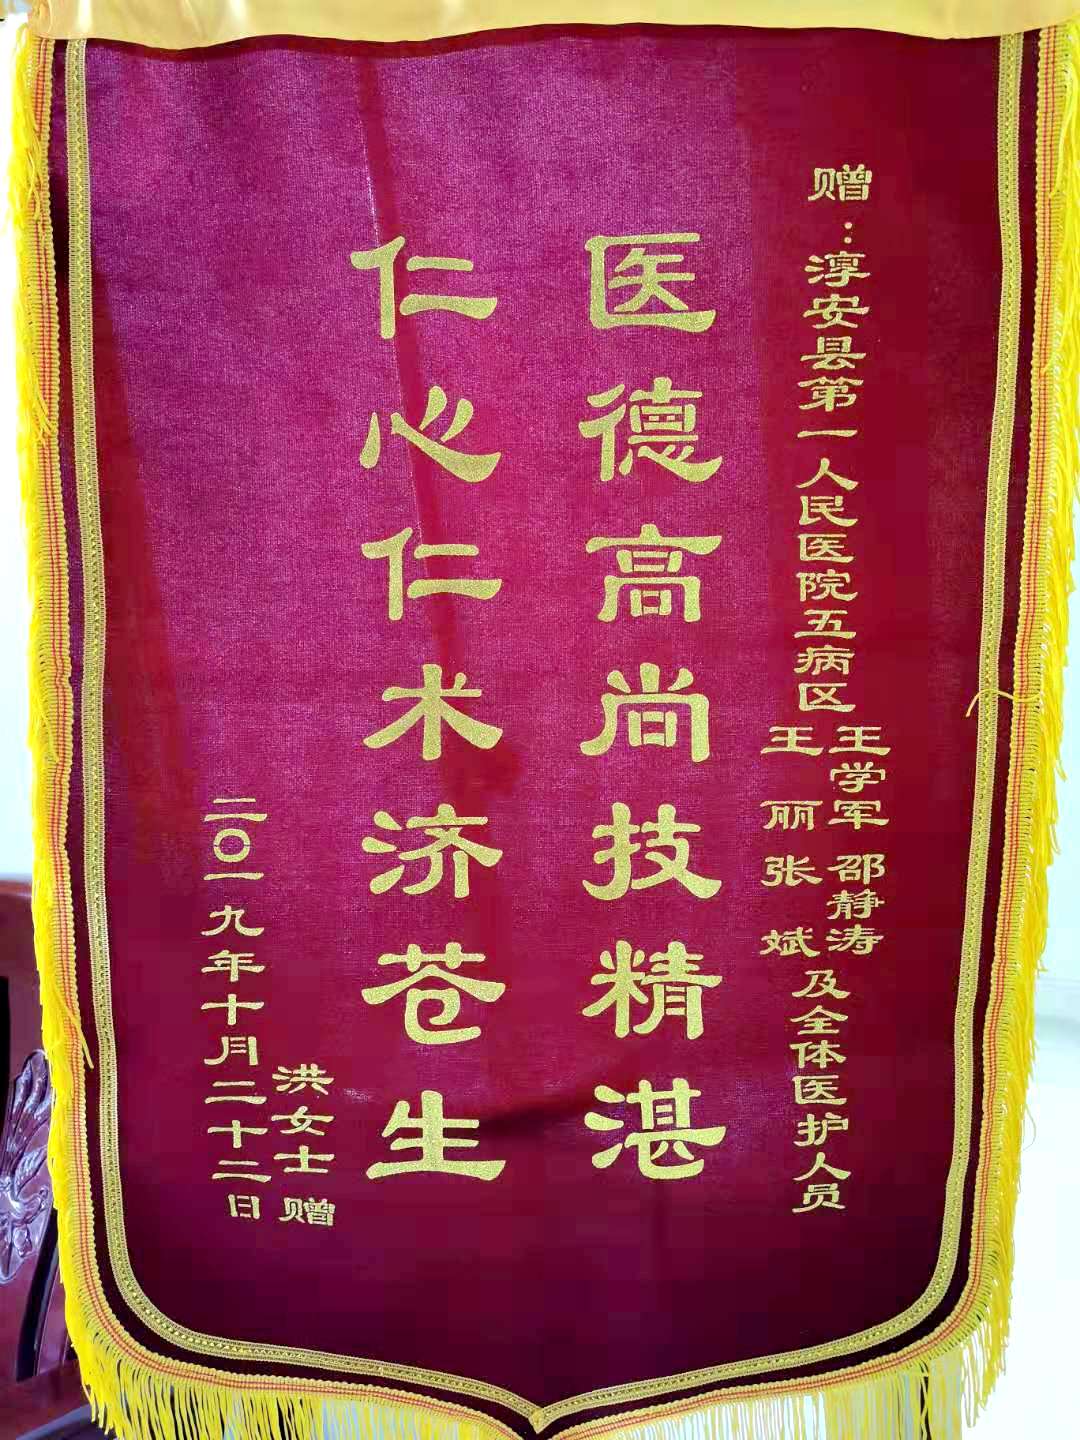 赠：淳安县第一人民医院五病区
王学军 邵静涛
王 丽 张 斌
及全体医护人员
医德高尚技精湛
仁心仁术济苍生
洪女士 赠
二〇一九年十月二十二日